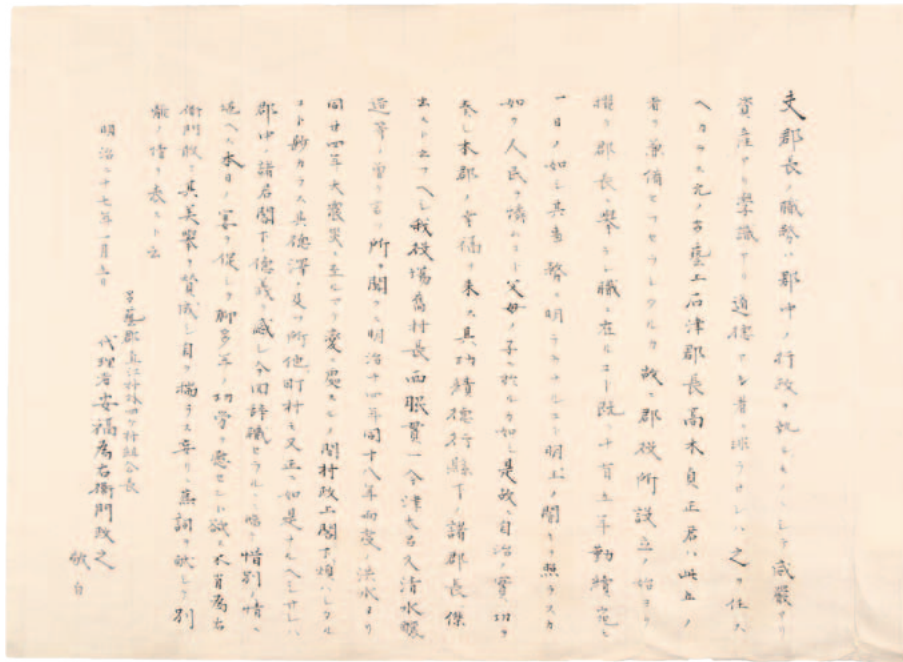 夫郡長ノ職務ハ郡中ノ行政ヲ執ルモノニシテ威嚴アリ
資産アリ學識アリ道德アル者ニ非ラサレハ之ヲ任ス
ヘカラス元ノ多藝上石津郡長高木貞正君ハ此五ノ
者ヲ兼備セラル故ニ郡役所設立ノ始ヨリ
撰ハレ郡長ニ擧ラレ職ニ在ルコト既ニ十有五年勤績宛モ
一日ノ如シ其事務ニ明ラカナルコト明上ノ闇ヲ照ラスカ
如ク人民ヲ憐ムコト父母ノ子ニ於ルカ如シ是故ニ自治ノ實功ヲ
奏シ本郡ノ幸福ヲ来ス其功績德行縣下ノ諸郡長ニ傑
出スト云フヘシ我役場舊村長西脇貫一今津大吉久清水暖
造等ノ曽テ言フ所ヲ聞クニ明治十四年同十八年両度ノ洪水ヨリ
同廿四年大震災ニ至ルマテ憂慮スルノ間村政上閣下ヲ煩ハシタル
コト尠カラス其德澤ノ及フ所他町村モ又正ニ如是ナルヘシサレハ
郡中ノ諸君閣下ノ德義ニ感シ今回辞職セラルヽニ臨ミ惜別ノ情ニ
堪ヘス本日ノ宴ヲ催シテ聊多年ノ功労ヲ慰セント欲ス不肖為右
衛門敢テ其美擧ヲ賛成シ自ラ揣ラス妄リニ蕪詞ヲ献シテ別
離ノ情ヲ表スト云
明治三十七年一月五日
多藝郡直江村外四ヶ村組合長
代理者安福為右衛門政之
敬白